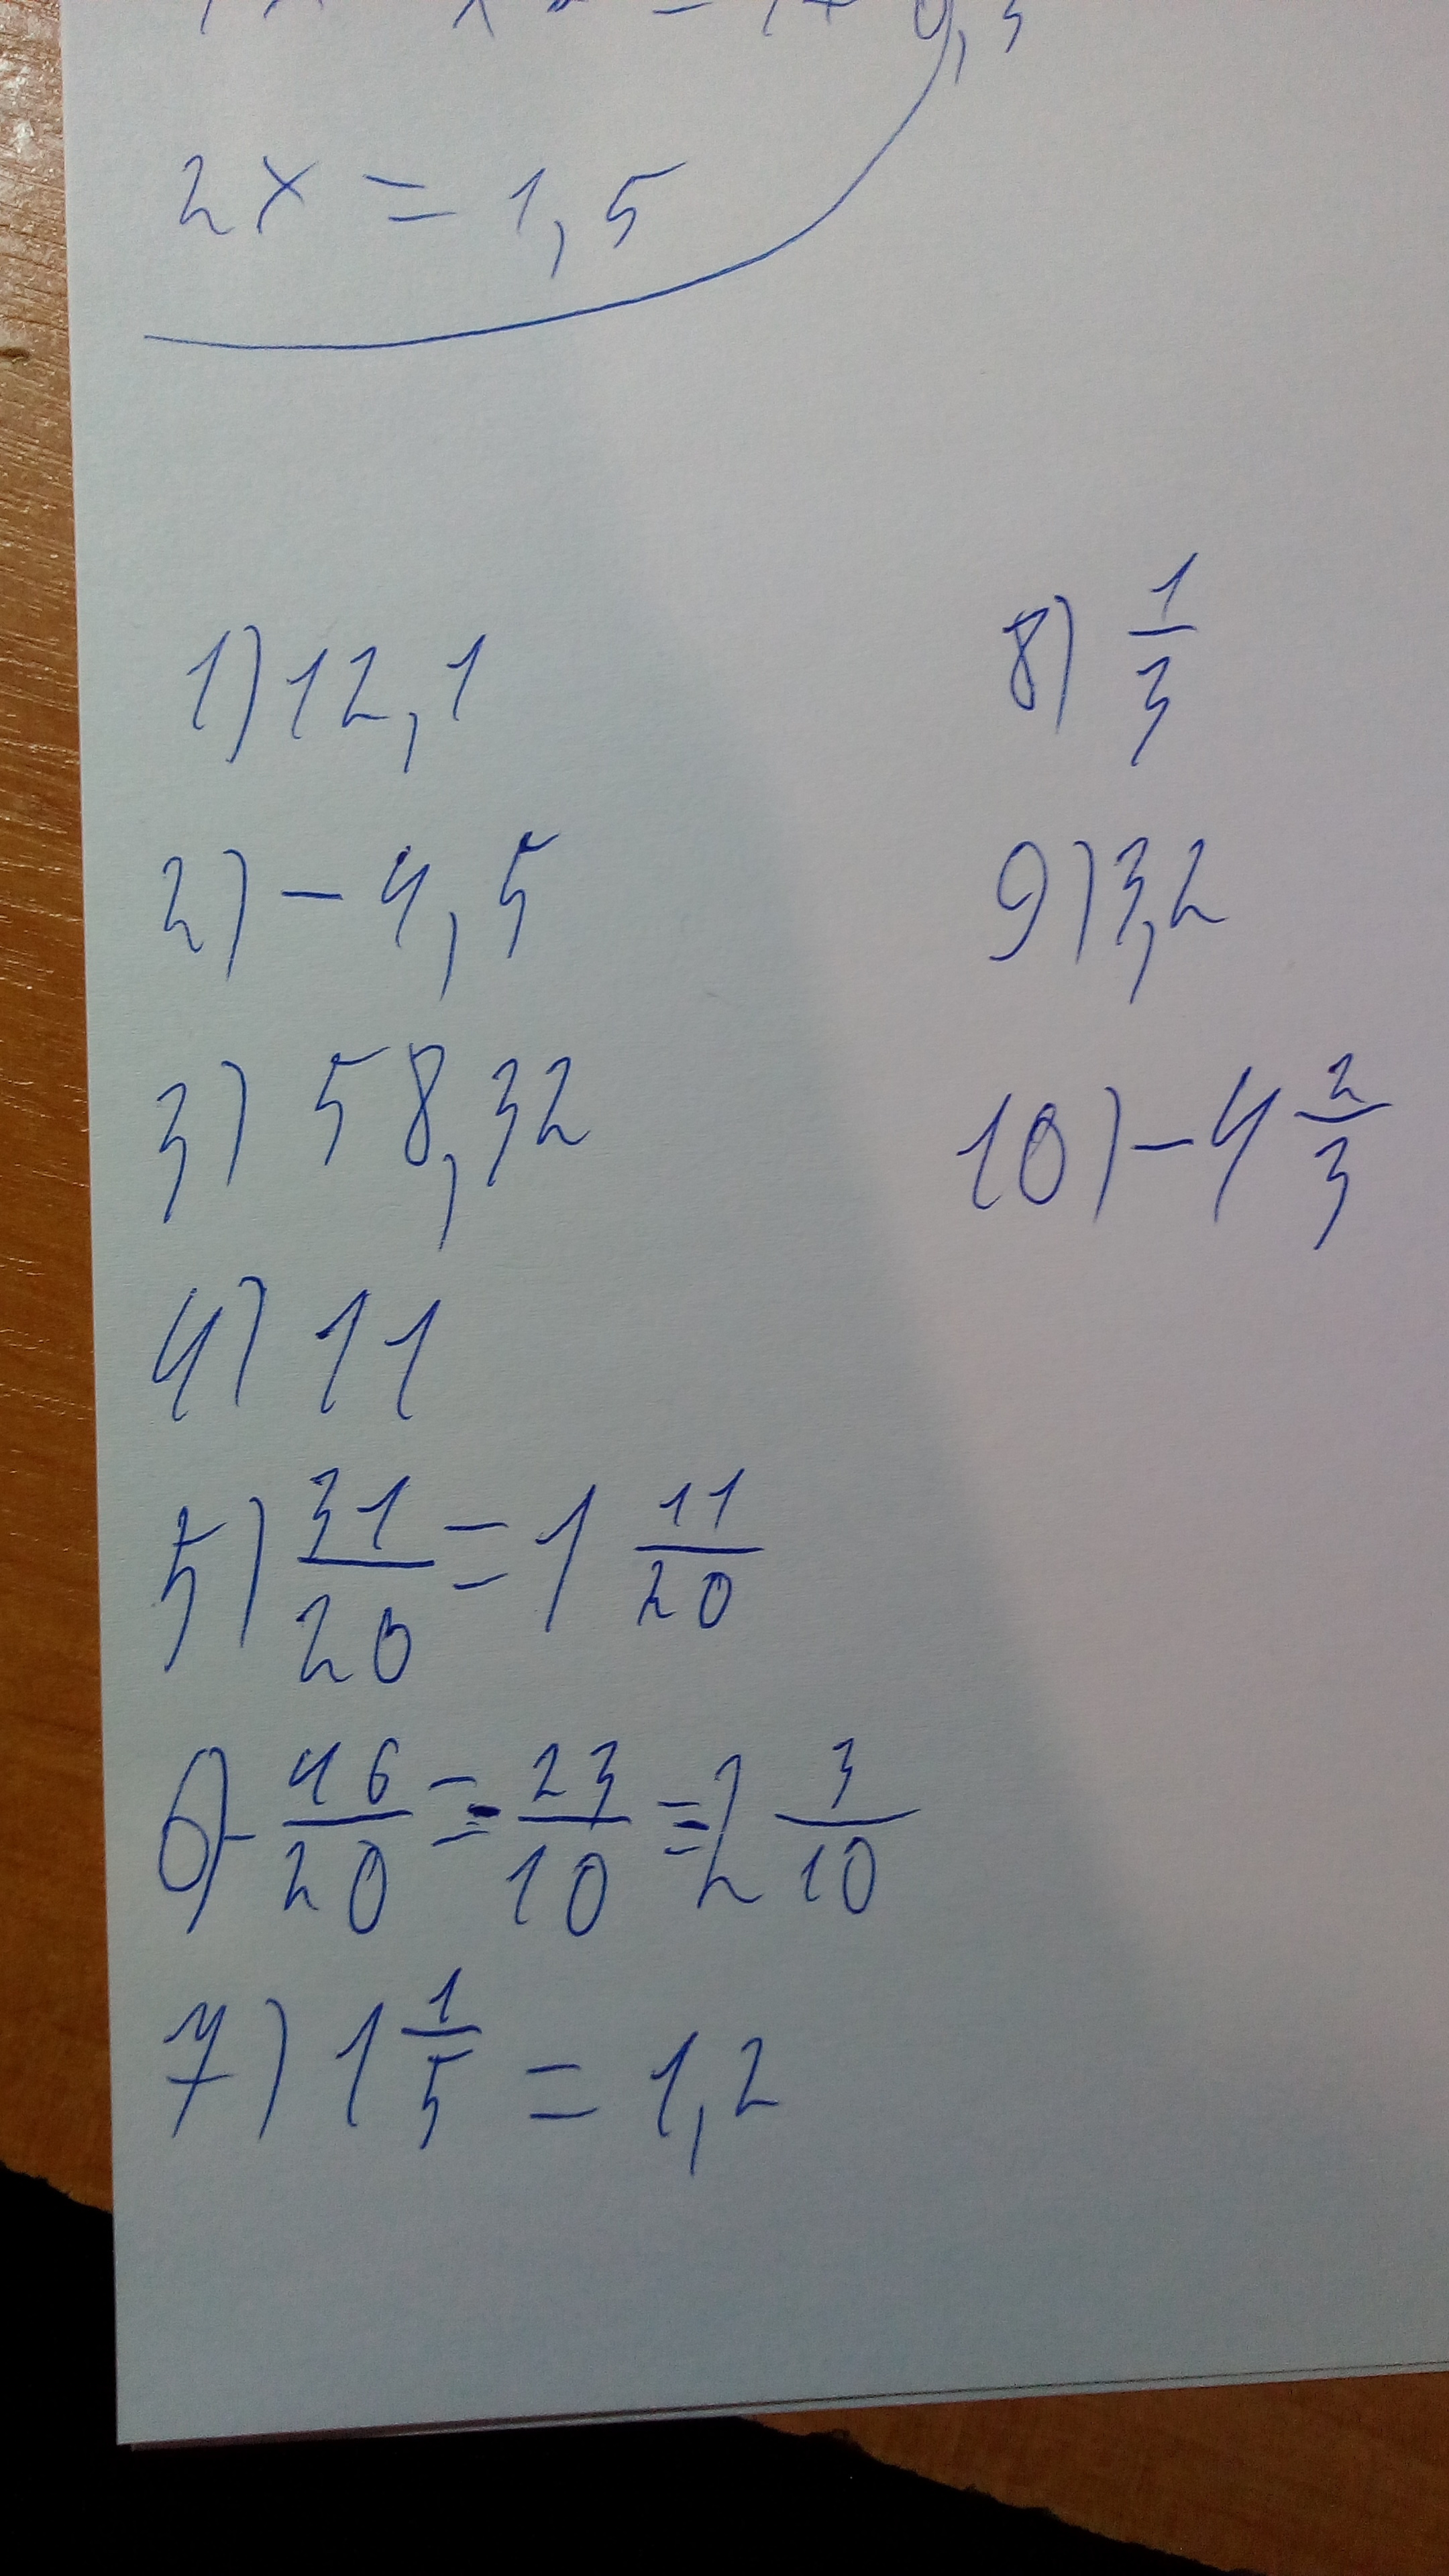 2x = 1,5
1) 12,1
2) - 4,5
3) 58,32
4) 11
5) 31/20 = 1 11/20
6) - 46/20 = - 23/10 = - 2 3/10
7) 1 1/5 = 1,2
8) 1/3
9) 3,2
10) - 4 2/3